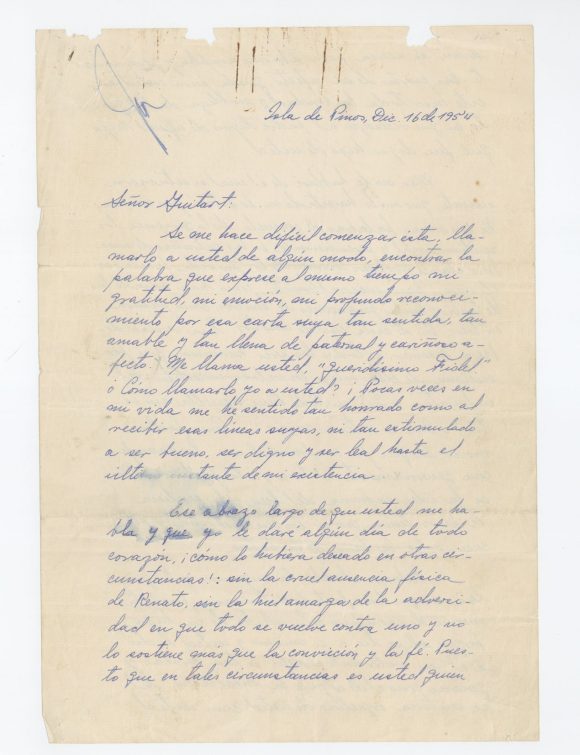 Isla de Pinos, Dic. 16 de 1954
Señor Guitart:
Se me hace difícil comenzar ésta, lla-
marlo a usted de algún modo, encontrar la
palabra que exprese al mismo tiempo mi
gratitud, mi emoción, mi profundo reconoci-
miento por esa carta suya tan sentida, tan
amable y tan llena de paternal y cariñoso a-
fecto. Me llama usted, "queridísimo Fidel"
ó Cómo llamarlo yo a usted? ¡Pocas veces en
mi vida me he sentido tan honrado como al
recibir esas líneas suyas, ni tan estimulado
a ser bueno, ser digno y ser leal hasta el
instante de mi existencia
Ese abrazo largo de que usted me ha-
bla y que yo le daré algún día de todo
corazón, ¡cómo lo hubiera deseado en otras cir-
cunstancias!: sin la cruel ausencia física
de Renato, sin la hiel amarga de la adversi-
dad en que todo se vuelve contra uno y no
lo sostiene más que la convicción y la fé. Pues-
to que en tales circunstancias es usted quien